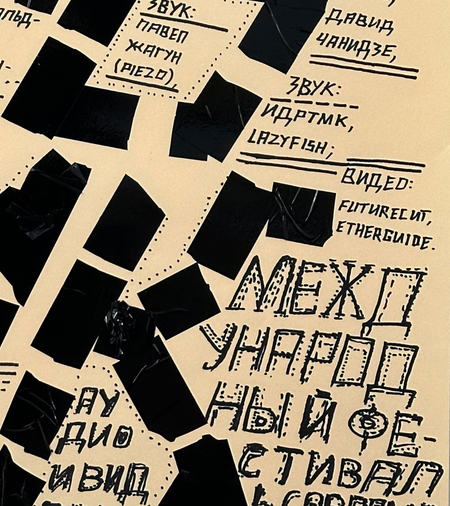 ЗВУК:
ПАВЕЛ
ЖАГУН
(PIEZO),
ДАВИД
ЧАНИДЗЕ,
ЗВУК:
ИДРТМК,
LAZYFISH;
ВИДЕО:
FUTURECUT,
ETHERGUIDE.
МЕЖД
УНАРОД
НЫЙ ФЕ-
СТИВАЛ
АУ
ДИО
И ВИД